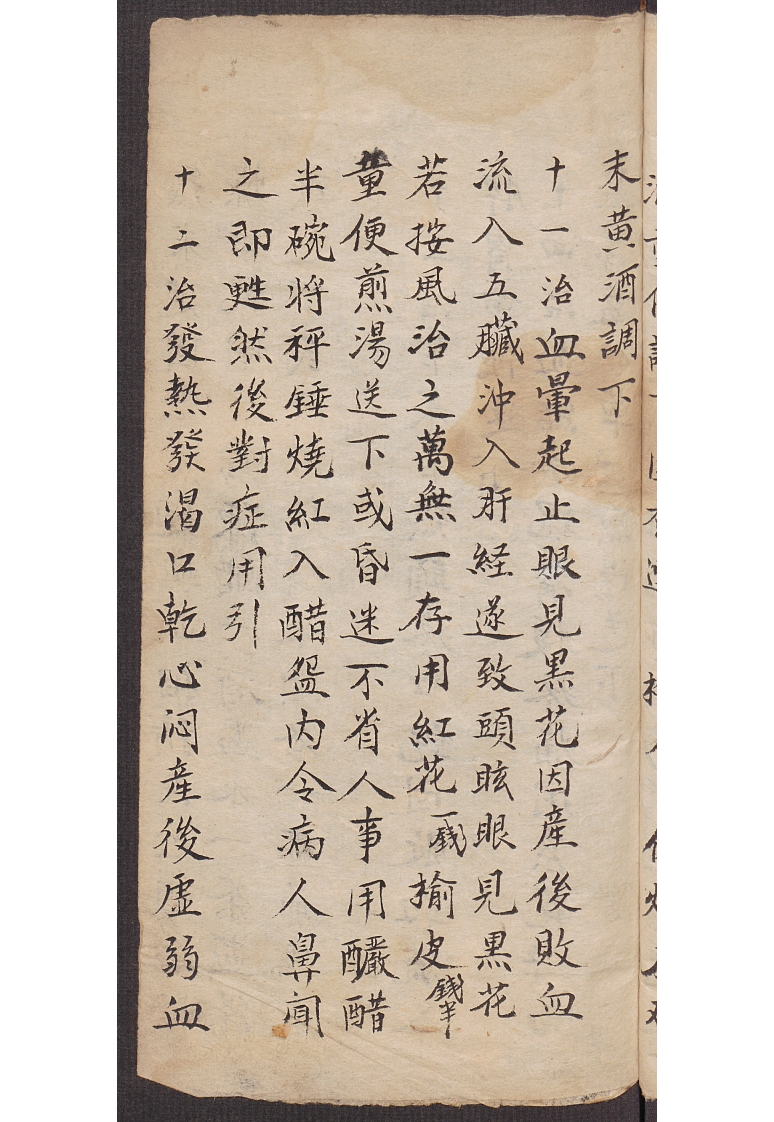 末黃酒調下
十一治血暈起止眼見黒花因産後敗血
流入五臟沖入肝経遂致頭眩眼見黒花
若按風治之萬無一存用紅花一錢榆皮錢半
童便煎湯送下或昏迷不省人事用釅醋
半碗将秤錘燒紅入醋盌内令病人鼻闻
之即甦然後對症用引
十二治發熱發渴口乾心闷産後虛弱血